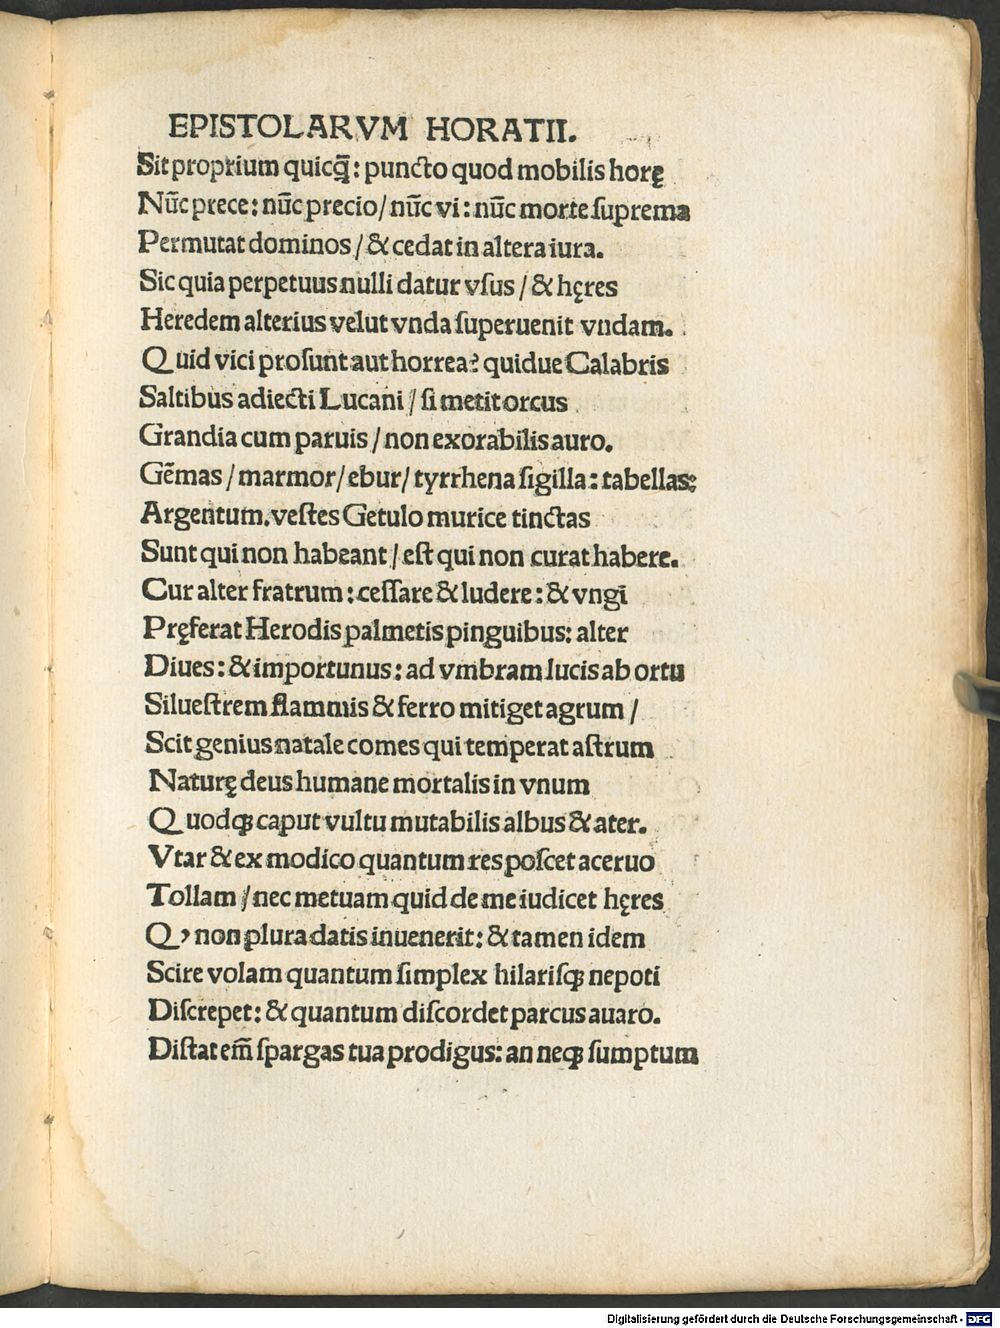 EPISTOLARVM HORATII.
Sit proprium quicq̃: puncto quod mobilis horę
Nũc prece: nũc precio/ nũc vi: nũc morte ſuprema
Permutat dominos/ & cedat in altera iura.
Sic quia perpetuus nulli datur vſus/ & hęres
Heredem alterius velut vnda ſuperuenit vndam.
Quid vici proſunt aut horrea? quidue Calabris
Saltibus adiecti Lucani/ ſi metit orcus
Grandia cum paruis/ non exorabilis auro.
Gẽmas/ marmor/ ebur/ tyrrhena ſigilla: tabellas:
Argentum. veſtes Getulo murice tinctas
Sunt qui non habeant/ eſt qui non curat habere.
Cur alter fratrum: ceſſare & ludere: & vngi
Pręferat Herodis palmetis pinguibus: alter
Diues: & importunus: ad vmbram lucis ab ortu
Silueſtrem flammis & ferro mitiget agrum/
Scit genius natale comes qui temperat aſtrum
Naturę deus humane mortalis in vnum
Quodqꝫ caput vultu mutabilis albus & ater.
Vtar & ex modico quantum res poſcet aceruo
Tollam/ nec metuam quid de me iudicet hęres
Q, non plura datis inuenerit: & tamen idem
Scire volam quantum ſimplex hilariſqꝫ nepoti
Diſcrepet: & quantum diſcordet parcus auaro.
Diſtat em̃ ſpargas tua prodigus: an neqꝫ ſumptum
Digitalisierung gefördert durch die Deutsche Forschungsgemeinschaft - DFG